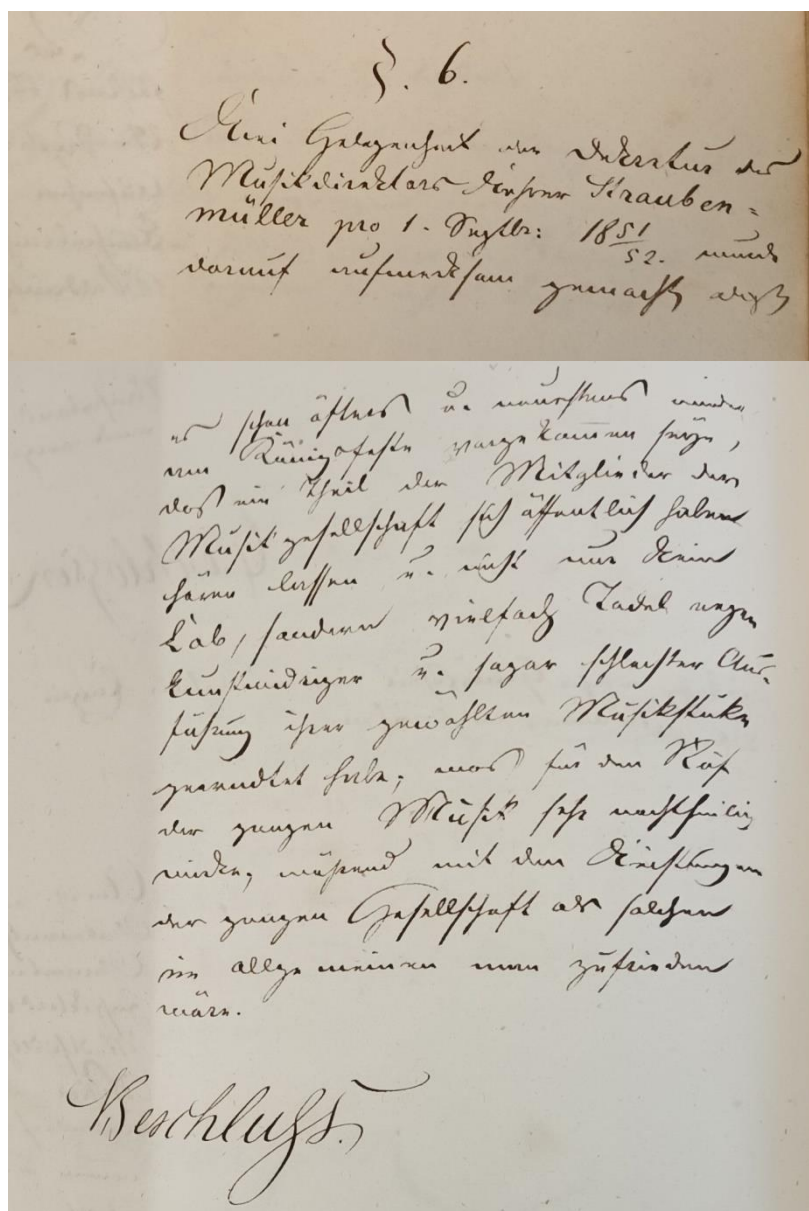 §. 6.
Bei Gelegenheit der Dekretur des
Musikdirektors Lehrer Strauben=
müller pro 1. Septbr: 1851/52. wurde
darauf aufmerksam gemacht, daß
es schon öfters u. neuestens wieder
am Königsfeste vorgekommen seye,
daß ein Theil der Mitglieder der
Musikgesellschaft sich öffentlich haben
hören lassen u. nicht nur kein
Lob, sondern vielfach Tadel wegen
kunstwidriger u. sogar schlechter Aus-
führung ihrer gewählten Musikstüke
geerndtet habe, was für den Ruf
der ganzen Musik sehr nachtheilig
wirke, während mit den Leistungen
der ganzen Gesellschaft als solchen
im allgemeinen man zufrieden
wäre.
Beschluß.